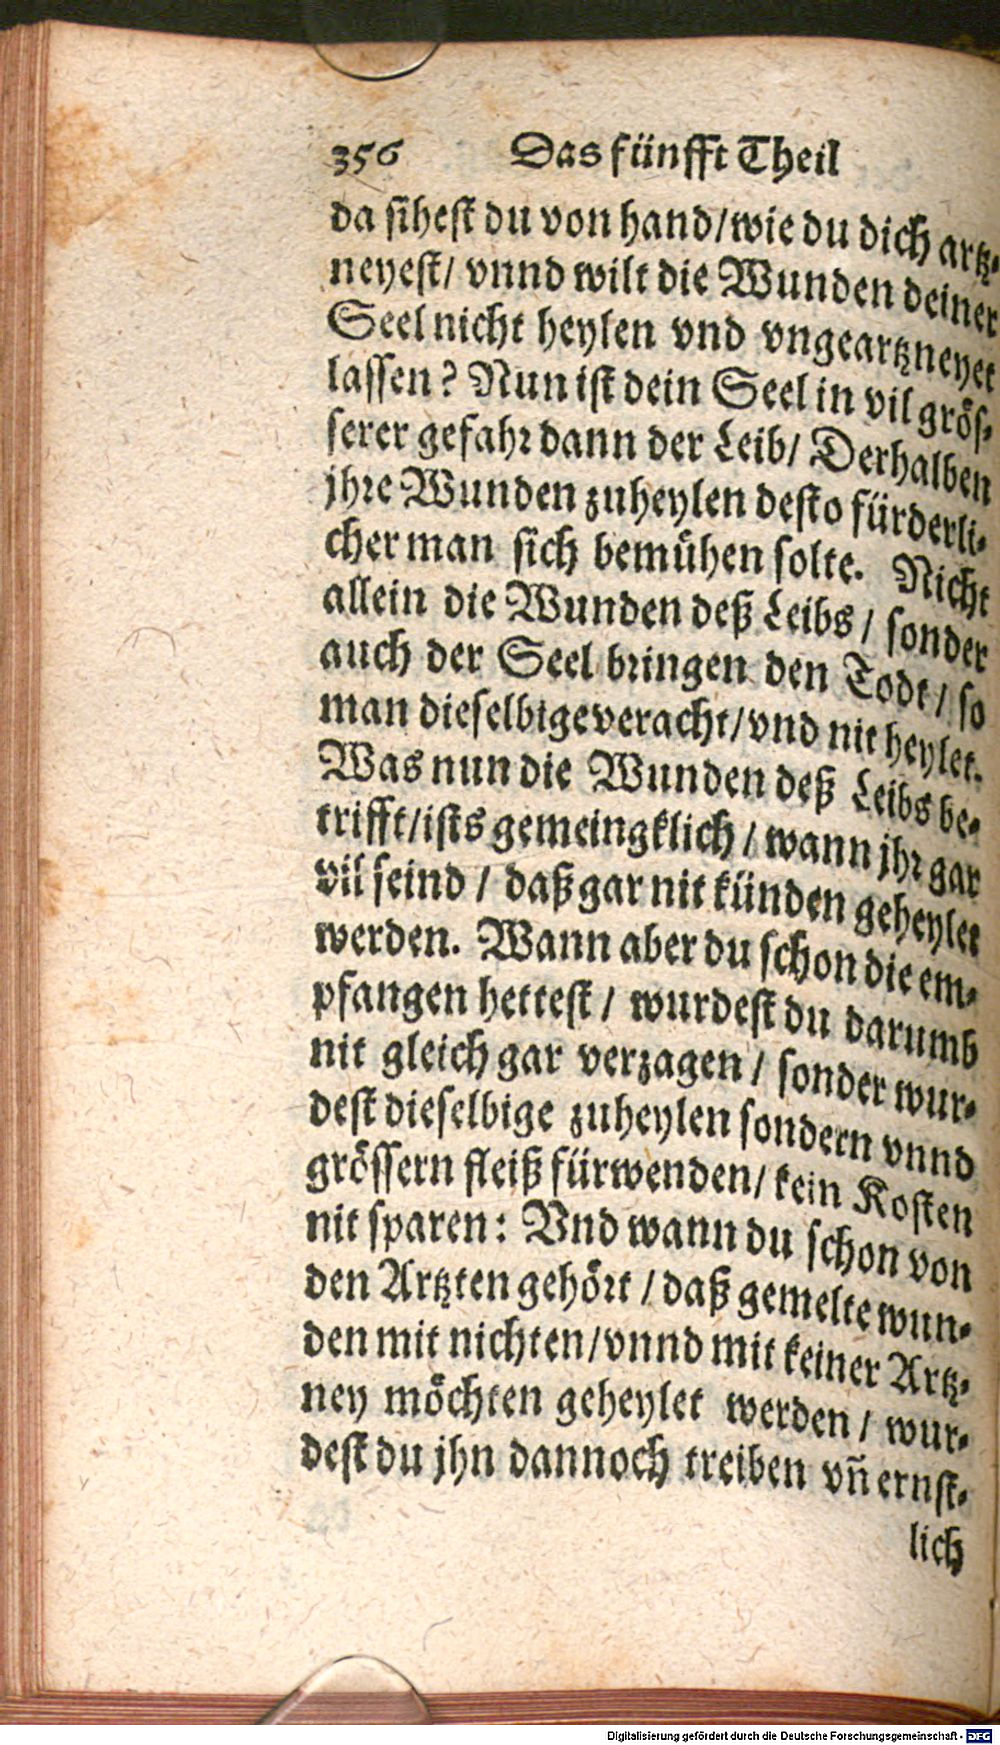 356 Das fünfft Theil
da sihest du von hand/wie du dich artz-
neyest/ vnnd wilt die Wunden deiner
Seel nicht heylen vnd vngeartzneyet
lassen? Nun ist dein Seel in vil grös-
serer gefahr dann der Leib/ Derhalben
jhre Wunden zuheylen desto fürderli-
cher man sich bemühen solte. Nicht
allein die Wunden deß Leibs / sonder
auch der Seel bringen den Todt / so
man dieselbige veracht/vnd nit heylet.
Was nun die Wunden deß Leibs be-
trifft/ists gemeingklich / wann jhr gar
vil seind / daß gar nit künden geheylet
werden. Wann aber du schon die em-
pfangen hettest / wurdest du darumb
nit gleich gar verzagen / sonder wur-
dest dieselbige zuheylen sondern vnnd
grössern fleiß fürwenden/ kein Kosten
nit sparen: Vnd wann du schon von
den Artzten gehört / daß gemelte wun-
den mit nichten/vnnd mit keiner Artz-
ney möchten geheylet werden / wur-
dest du jhn dannoch treiben vñ ernst-
lich
Digitalisierung gefördert durch die Deutsche Forschungsgemeinschaft - DFG